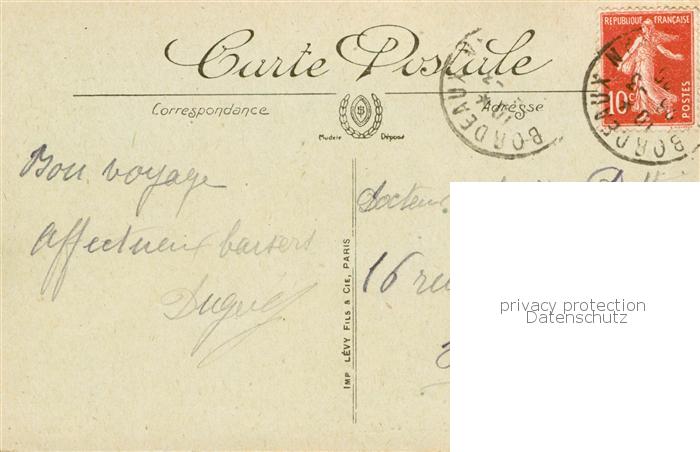 Carte Postale
REPUBLIQUE FRANÇAISE
10c
POSTES
BORDEAUX
BORDEAUX
Correspondance
Adresse
Modèle Déposé
Bon voyage
Affectueux baisers
Dugué
Docteur
16 rue
IMP LÉVY FILS & CIE, PARIS
privacy protection
Datenschutz